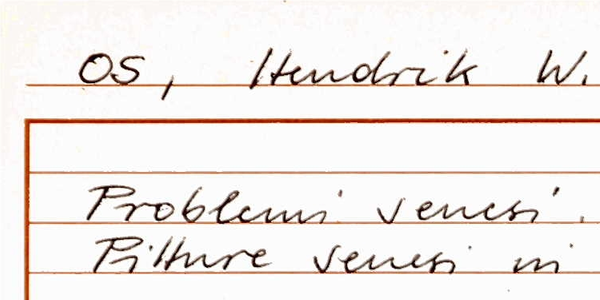 OS, Hendrik W.
Problemi senesi.
Pitture senesi in